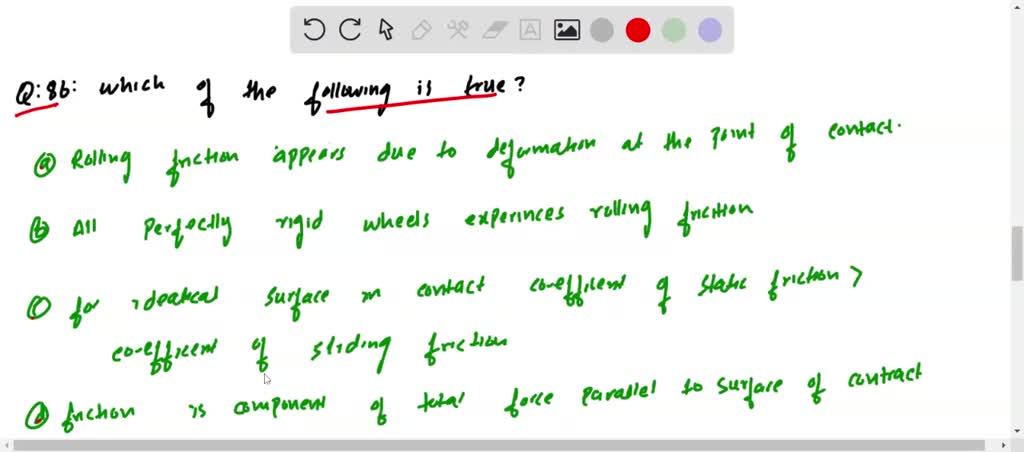 Q:86: which of the following is true?
@ Rolling friction appears due to deformation at the point of contact.
ⓑ All perfectly rigid wheels experinces rolling friction
© for identical surface in contact co-efficient of static friction >
co-efficient of sliding friction
ⓓ friction is component of total force parallel to surface of contract